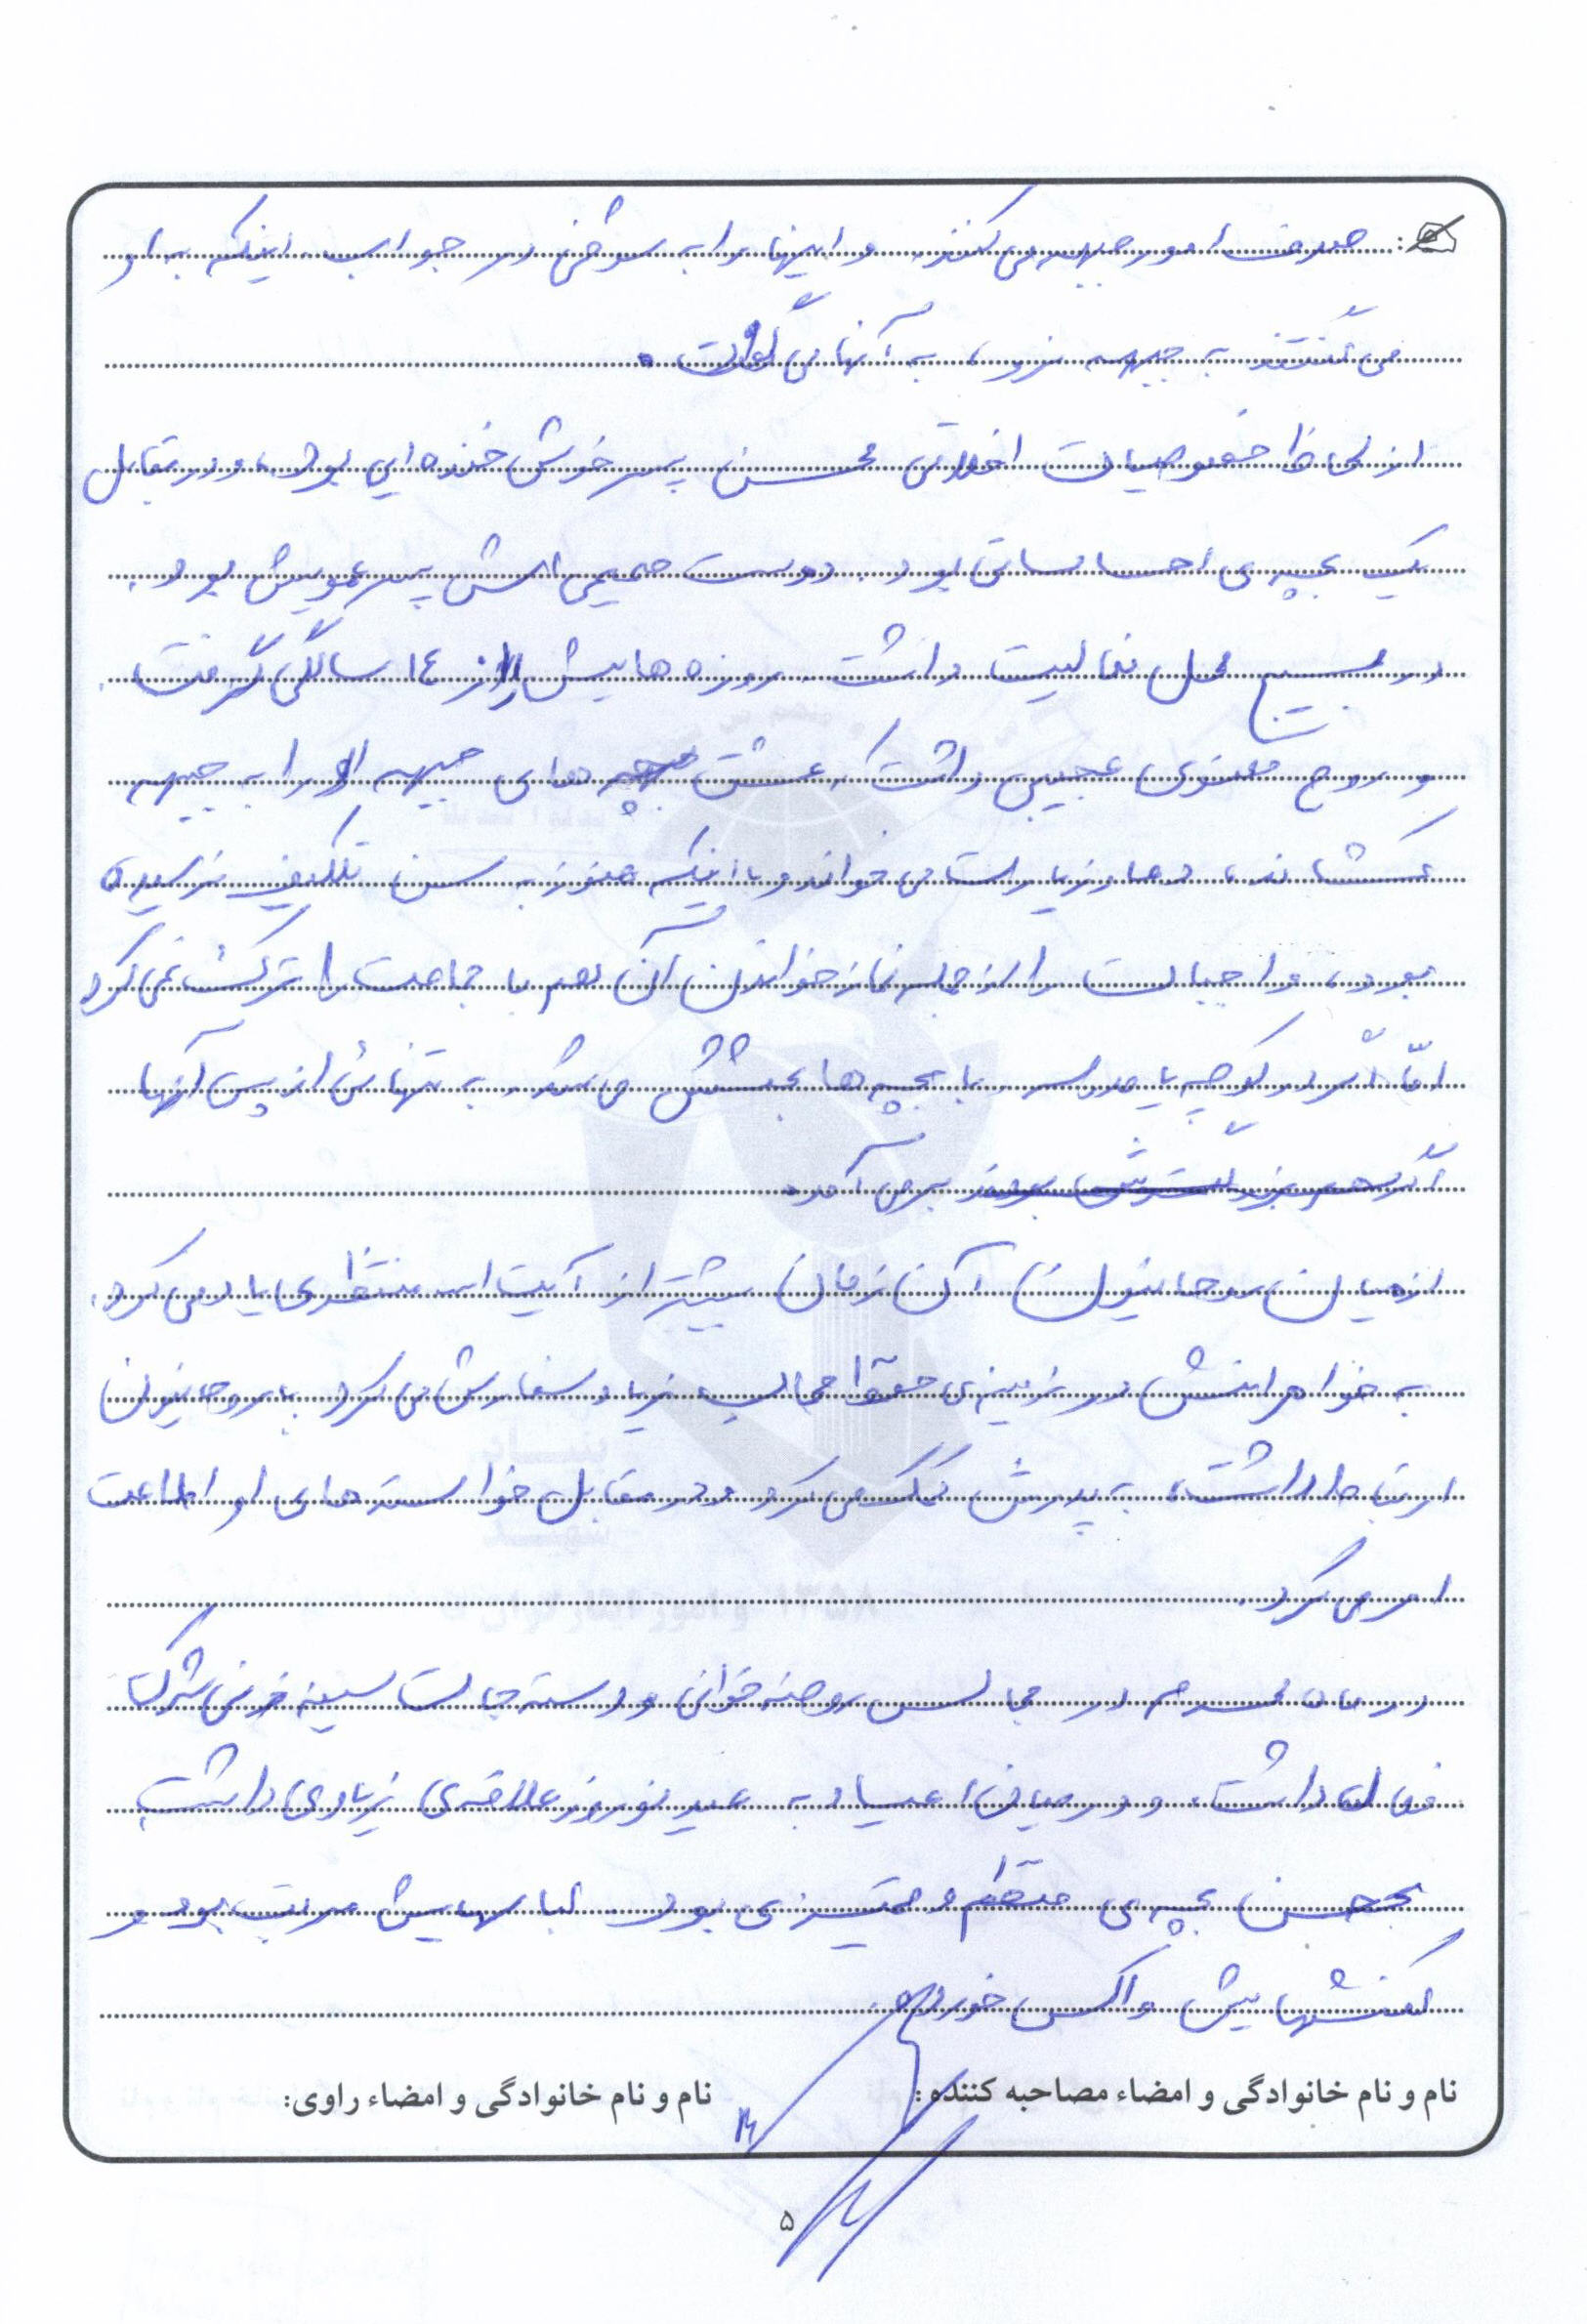 : صرف امور جبهه می کنند. و اینها را به شوخی در جواب اینکه به او
می گفتند به جبهه نرو، به آنها می گفت.
از لحاظ خصوصیات اخلاقی محسن پسر خوش خنده ایی بود، و در مقابل
یک بچه ی احساساتی بود. دوست صمیمی اش پسر عمویش بود.
در بسیج محل فعالیت داشت. روزه هایش را از ۱٤ سالگی گرفت.
و روح معنوی عجیبی داشت، عشق بچه های جبهه او را به جبهه
کشاند، دعا و زیارت می خواند و با اینکه هنوز به سن تکلیف نرسیده
بود، واجبات را از جمله نماز خواندن آن هم با جماعت را ترک نمی کرد
امّا اگر در کوچه یا مدرسه با بچه ها بحثش می شد. به تنهائی از پس آنها
بر می آمد.
از میان روحانیون آن زمان بیشتر از آیت اله منتظری یاد می کرد.
به خواهرانش در زمینه ی حجاب زیاد سفارش می کرد. با روحانیون
ارتباط داشت، به پدرش کمک می کرد و در مقابل خواسته های او اطاعت
امر می کرد.
در ماه محرم در مجالس روضه خوانی و دسته جات سینه زنی شرکت
فعال داشت. و در میان اعیاد به عید نوروز علاقه ی زیادی داشت
محسن بچه ی منظم و تمیزی بود. لباسهایش مرتب بود و
کفشهایش واکس خورده.
نام و نام خانوادگی و امضاء مصاحبه کننده: نام و نام خانوادگی و امضاء راوی:
۵